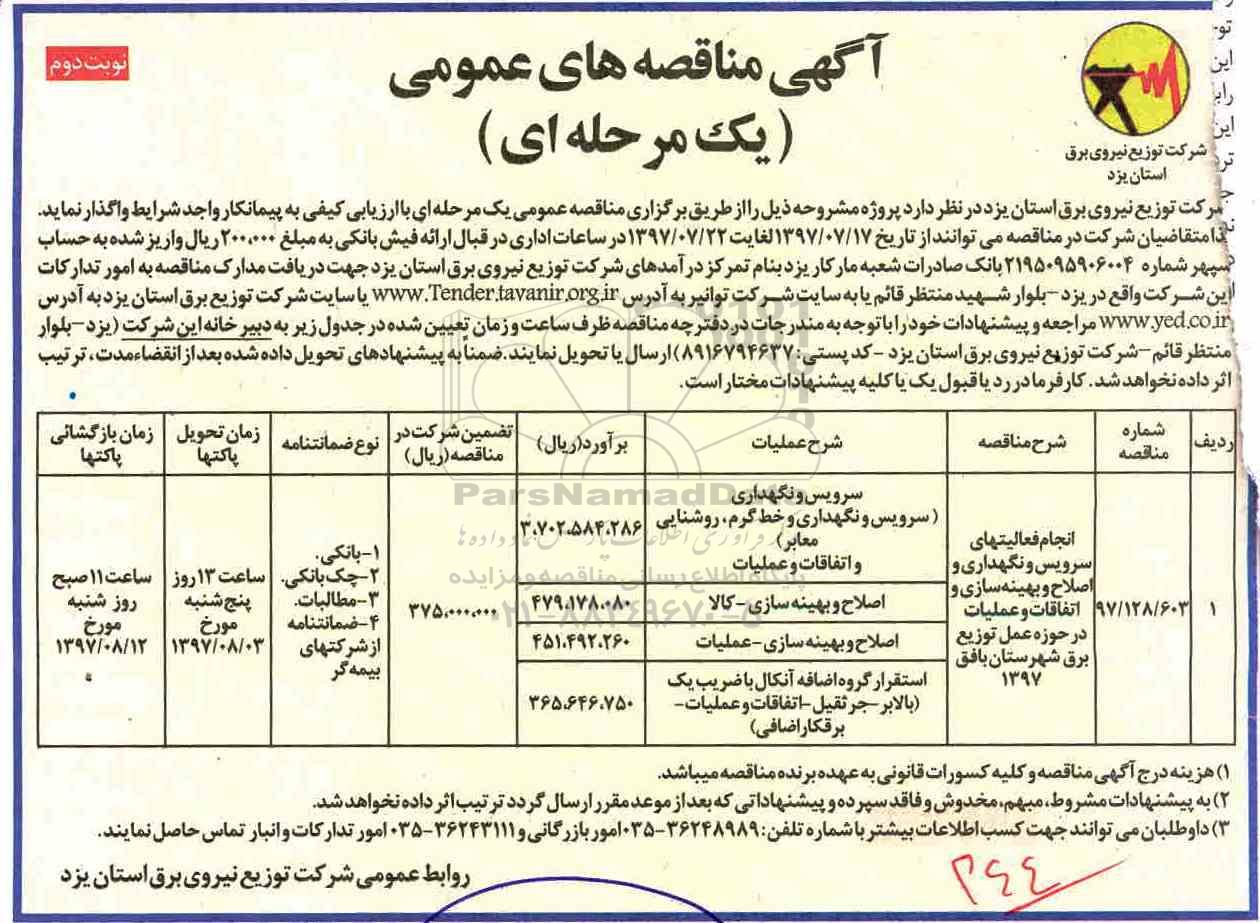 نوبت دوم
آگهی مناقصه های عمومی
(یک مرحله ای)
شرکت توزیع نیروی برق
استان یزد
شرکت توزیع نیروی برق استان یزد در نظر دارد پروژه مشروحه ذیل را از طریق برگزاری مناقصه عمومی یک مرحله ای با ارزیابی کیفی به پیمانکار واجد شرایط واگذار نماید.
لذا متقاضیان شرکت در مناقصه می توانند از تاریخ ۱۳۹۷/۰۷/۱۷ لغایت ۱۳۹۷/۰۷/۲۲ در ساعات اداری در قبال ارائه فیش بانکی به مبلغ ۲۰۰,۰۰۰ ریال واریز شده به حساب
سپهر شماره ۲۱۹۵۰۹۵۹۰۶۰۰۴ بانک صادرات شعبه مارکار یزد بنام تمرکز درآمدهای شرکت توزیع نیروی برق استان یزد جهت دریافت مدارک مناقصه به امور تدارکات
این شرکت واقع در یزد –بلوار شهید منتظر قائم یا به سایت شرکت توانیر به آدرس www.Tender.tavanir.org.ir یا سایت شرکت توزیع برق استان یزد به آدرس
www.yed.co.ir مراجعه و پیشنهادات خود را با توجه به مندرجات در دفترچه مناقصه ظرف ساعت و زمان تعیین شده در جدول زیر به دبیر خانه این شرکت (یزد–بلوار
منتظر قائم–شرکت توزیع نیروی برق استان یزد -کد پستی: ۸۹۱۶۷۹۴۶۳۷) ارسال یا تحویل نمایند. ضمناً به پیشنهادهای تحویل داده شده بعد از انقضاء مدت، ترتیب
اثر داده نخواهد شد. کارفرما در رد یا قبول یک یا کلیه پیشنهادات مختار است.
ردیف
شماره
مناقصه
شرح مناقصه
شرح عملیات
برآورد(ریال)
تضمین شرکت در
مناقصه(ریال)
نوع ضمانتنامه
زمان تحویل
پاکتها
زمان بازگشائی
پاکتها
۱
۹۷/۱۲۸/۶۰۳
انجام فعالیتهای
سرویس و نگهداری و
اصلاح و بهینه سازی و
اتفاقات و عملیات
در حوزه عمل توزیع
برق شهرستان بافق
۱۳۹۷
سرویس و نگهداری
(سرویس و نگهداری و خط گرم، روشنایی
معابر)
و اتفاقات و عملیات
۳,۷۰۲,۵۸۴,۲۸۶
اصلاح و بهینه سازی-کالا
۴۷۹,۱۷۸,۰۸۰
اصلاح و بهینه سازی-عملیات
۴۵۱,۴۹۲,۲۶۰
استقرار گروه اضافه آنکال با ضریب یک
(بالابر–جرثقیل-اتفاقات و عملیات-
برقکار اضافی)
۳۶۵,۶۴۶,۷۵۰
۳۷۵,۰۰۰,۰۰۰
۱-بانکی.
۲-چک بانکی.
۳-مطالبات.
۴-ضمانتنامه
از شرکتهای
بیمه گر
ساعت ۱۳ روز
پنج شنبه
مورخ
۱۳۹۷/۰۸/۰۳
ساعت ۱۱ صبح
روز شنبه
مورخ
۱۳۹۷/۰۸/۱۲
ParsNamadData
فرآوری اطلاعات پارس نماد داده ها
پایگاه اطلاع رسانی مناقصه و مزایده
۰۲۱-۸۸۳۴۹۶۷۰-۵
۱) هزینه درج آگهی مناقصه و کلیه کسورات قانونی به عهده برنده مناقصه میباشد.
۲) به پیشنهادات مشروط، مبهم، مخدوش و فاقد سپرده و پیشنهاداتی که بعد از موعد مقرر ارسال گردد ترتیب اثر داده نخواهد شد.
۳) داوطلبان می توانند جهت کسب اطلاعات بیشتر با شماره تلفن: ۳۶۲۴۸۹۸۹-۰۳۵ امور بازرگانی و ۳۶۲۴۳۱۱۱-۰۳۵ امور تدارکات و انبار تماس حاصل نمایند.
روابط عمومی شرکت توزیع نیروی برق استان یزد
۲۶۴